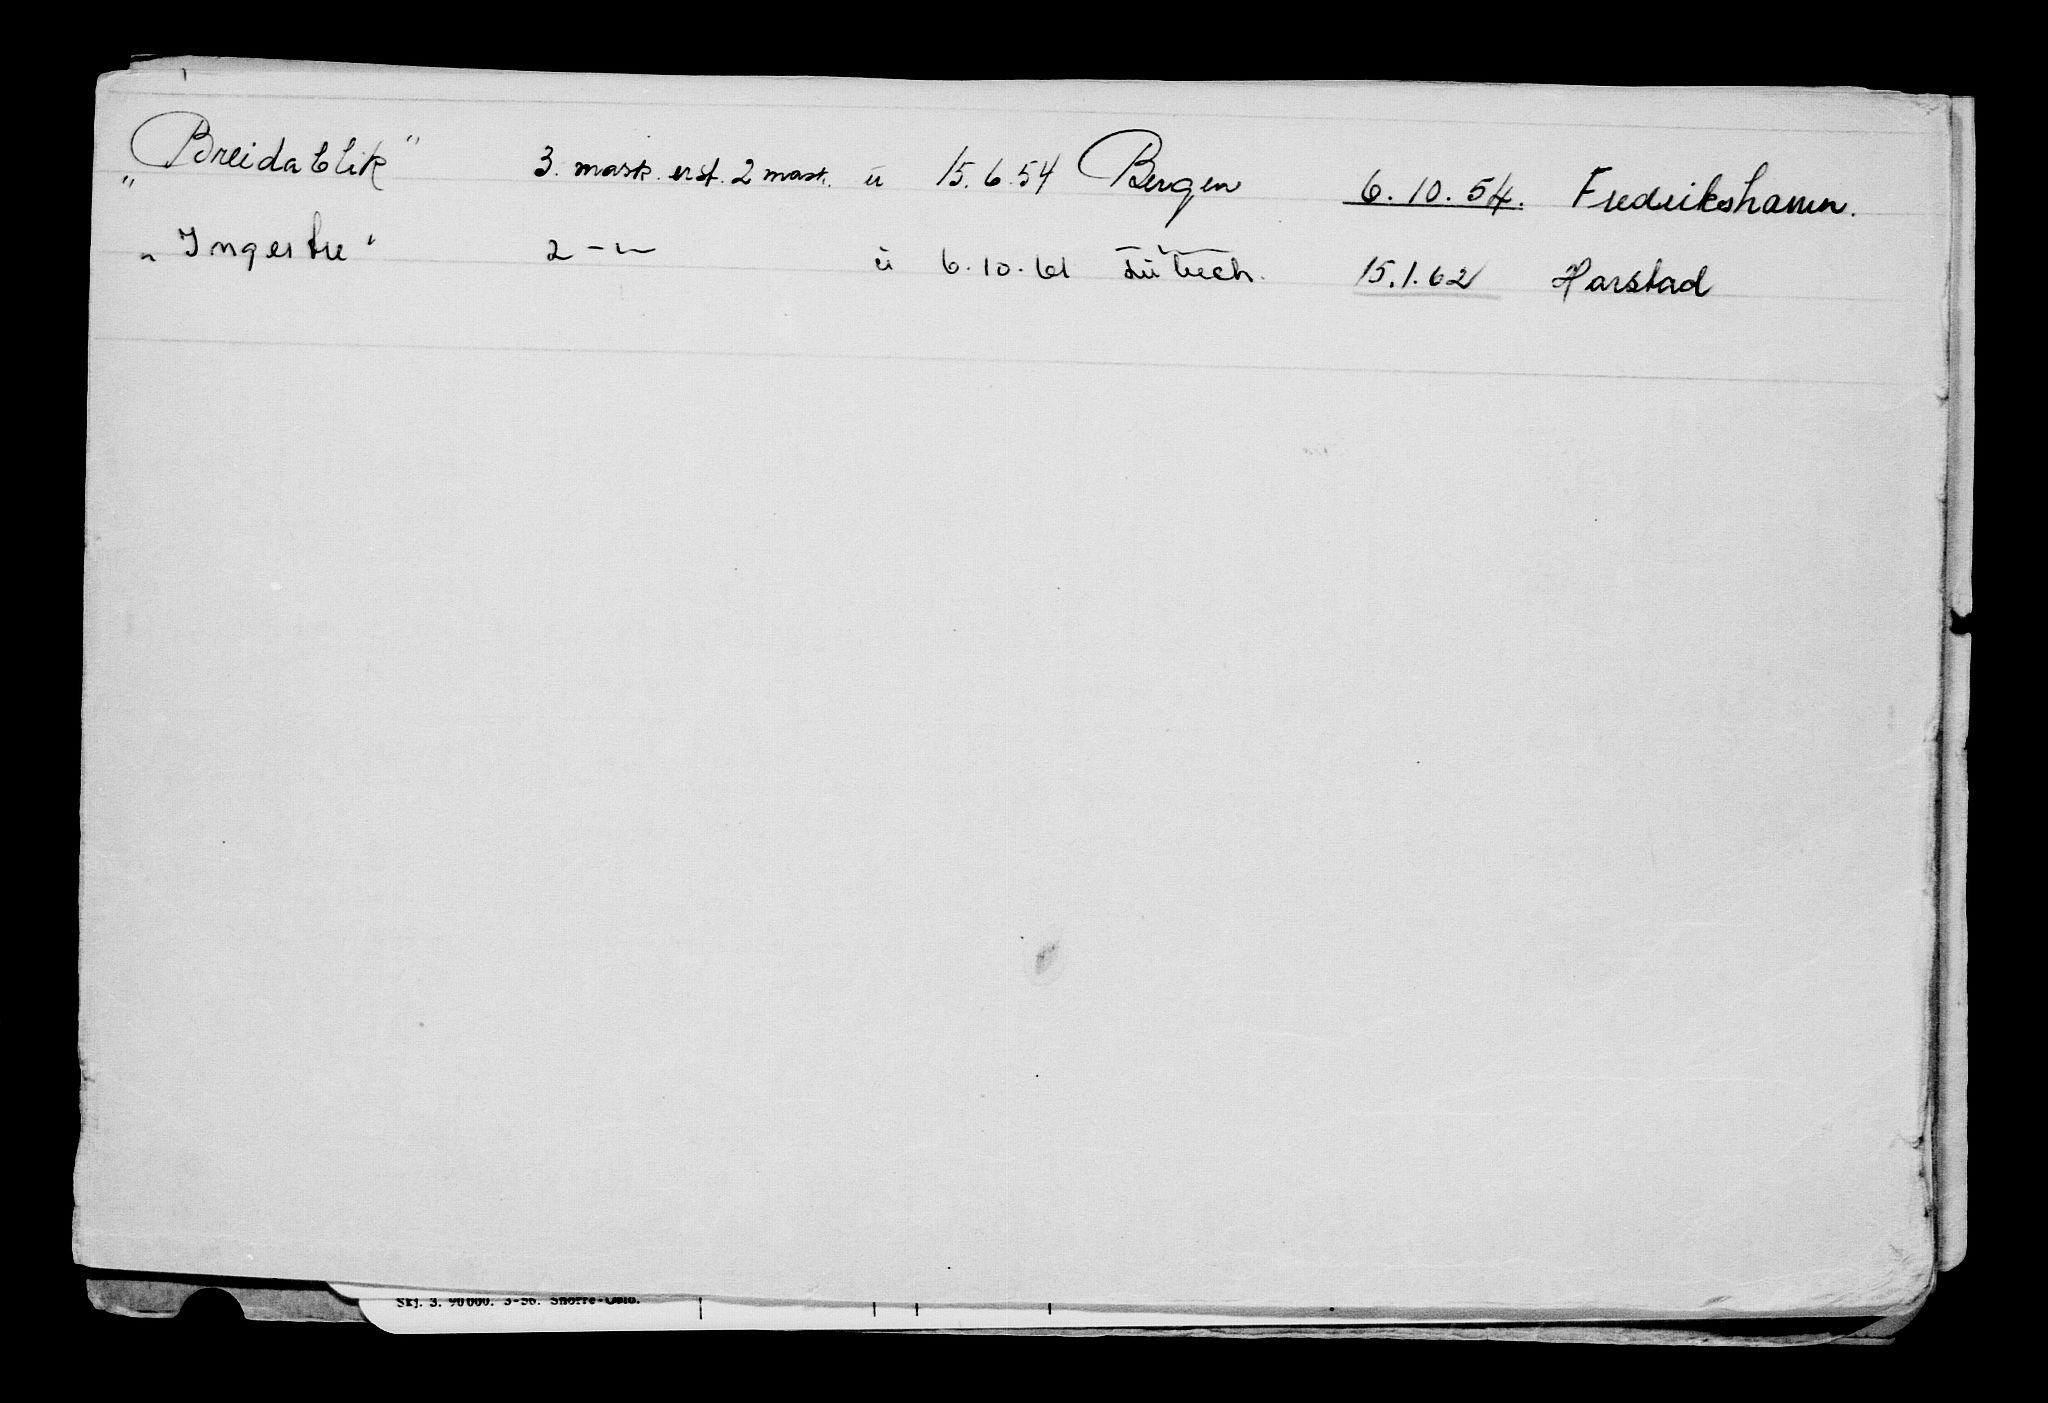 „Breidablik" 3. mask. erst. 2 mask. u 15.6.54 Bergen 6.10.54. Fredrikshamn.
„Ingertre" 2 -"- u 6.10.61 Lübeck. 15.1.62 Harstad
Skj. 3. 90 000. 3-56. Snorre-Oslo.